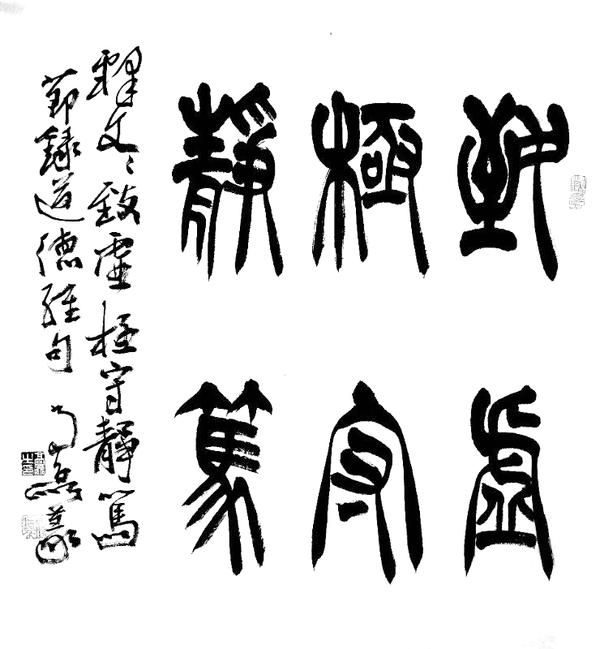 致虚
極守
靜篤
釋文：致虚極守靜篤
節錄道德經句